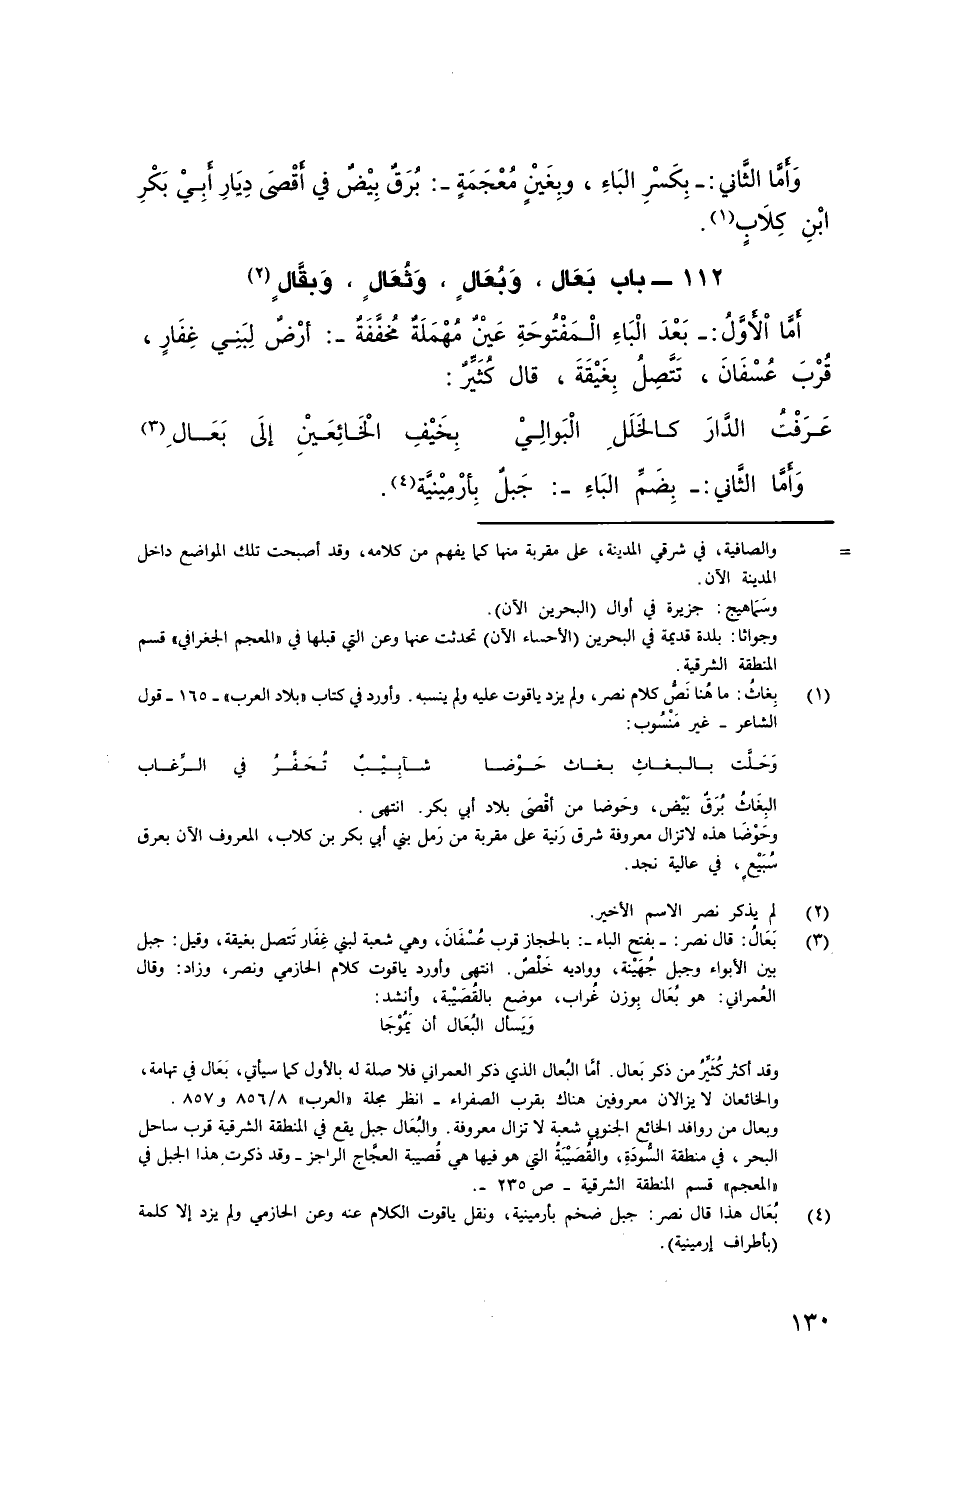 وَأَمَّا الثَّاني :ـ بِكَسْرِ البَاءِ ، وبِغَيْنٍ مُعْجَمَةٍ ـ: بُرَقٌ بِيْضٌ في أَقْصَى دِيَارِ أَبِيْ بَكْرِ
ابْنِ كِلَابٍ(١).
١١٢ ــ باب بَعَال ، وَبُعَالٍ ، وَثُعَالٍ ، وَبقَّالٍ(٢)
أَمَّا اْلأَوَّلُ :ـ بَعْدَ الْبَاءِ الْـمَفْتُوحَةِ عَيْنٌ مُهْمَلَةٌ مُخَفَّفَةٌ ـ: أرْضٌ لِبَنِـي غِفَارٍ ،
قُرْبَ عُسْفَانَ ، تَتَّصِلُ بِغَيْقَةَ ، قال كُثَيِّرٌ :
عَـرَفْتُ الدَّارَ كـالخَلَلِ الْبَوالِيْ بِخَيْفِ الْخَائِعَـيْنِ إلَى بَعَــالِ(٣)
وَأَمَّا الثَّاني :ـ بِضَمِّ البَاءِ ـ: جَبلٌ بِأرْمِيْنِيَّة(٤).
= والصافية، في شرقي المدينة، على مقربة منها كما يفهم من كلامه، وقد أصبحت تلك المواضع داخل
المدينة الآن.
وسَمَاهيج : جزيرة في أوال (البحرين الآن).
وجواثا : بلدة قديمة في البحرين (الأحساء الآن) تحدثت عنها وعن التي قبلها في «المعجم الجغرافي» قسم
المنطقة الشرقية.
(١) بِغاثُ : ما هُنا نَصُّ كلام نصر، ولم يزد ياقوت عليه ولم ينسبه. وأورد في كتاب «بلاد العرب» ـ ١٦٥ ـ قول
الشاعر ـ غير مَنْسُوب :
وَحَلَّت بـالـبـغـاثِ بـغـاث حَـوْضـا شـآبِـيْـبٌ تُـحَـفَّـرُ في الـرِّغـاب
البِغَاثُ بُرَقٌ بَيْض، وحَوضا من أقْصَى بلاد أبي بكر. انتهى .
وحَوْضَا هذه لاتزال معروفة شرق رَنية على مقربة من رَمل بني أبي بكر بن كلاب، المعروف الآن بعرق
سُبَيْعٍ، في عالية نجد.
(٢) لم يذكر نصر الاسم الأخير.
(٣) بَعَالُ : قال نصر : ـ بفتح الباء ـ: بالحجاز قرب عُسْفَانَ، وهي شعبة لبني غِفَار تَتصل بغيقة، وقيل : جبل
بين الأبواء وجبل جُهَيْنة، وواديه خَلْصٌ. انتهى وأورد ياقوت كلام الحازمي ونصر، وزاد : وقال
العُمراني : هو بُعَال بِوزن غُراب، موضع بالقُصَيْبة، وأنشد :
وَيَسأل البُعَال أن يَمُوْجَا
وقد أكثر كُثَيِّرٌ من ذكر بَعال. أمّا البُعال الذي ذكر العمراني فلا صلة له بالأول كما سيأتي، بَعَال في تهامة،
والخائعان لا يزالان معروفين هناك بقرب الصفراء ـ انظر مجلة «العرب» ٨/ ٨٥٦ و ٨٥٧ .
وبعال من روافد الخائع الجنوبي شعبة لا تزال معروفة. والبُعَال جبل يقع في المنطقة الشرقية قرب ساحل
البحر ، في منطقة السُّودَةِ، والقُصَيْبَةُ التي هو فيها هي قُصيبة العجَّاج الراجز ـ وقد ذكرت هذا الجبل في
«المعجم» قسم المنطقة الشرقية ـ ص ٢٣٥ ـ.
(٤) بُعَال هذا قال نصر : جبل ضخم بأرمينية، ونقل ياقوت الكلام عنه وعن الحازمي ولم يزد إلا كلمة
(بأطراف إرمينية).
١٣٠